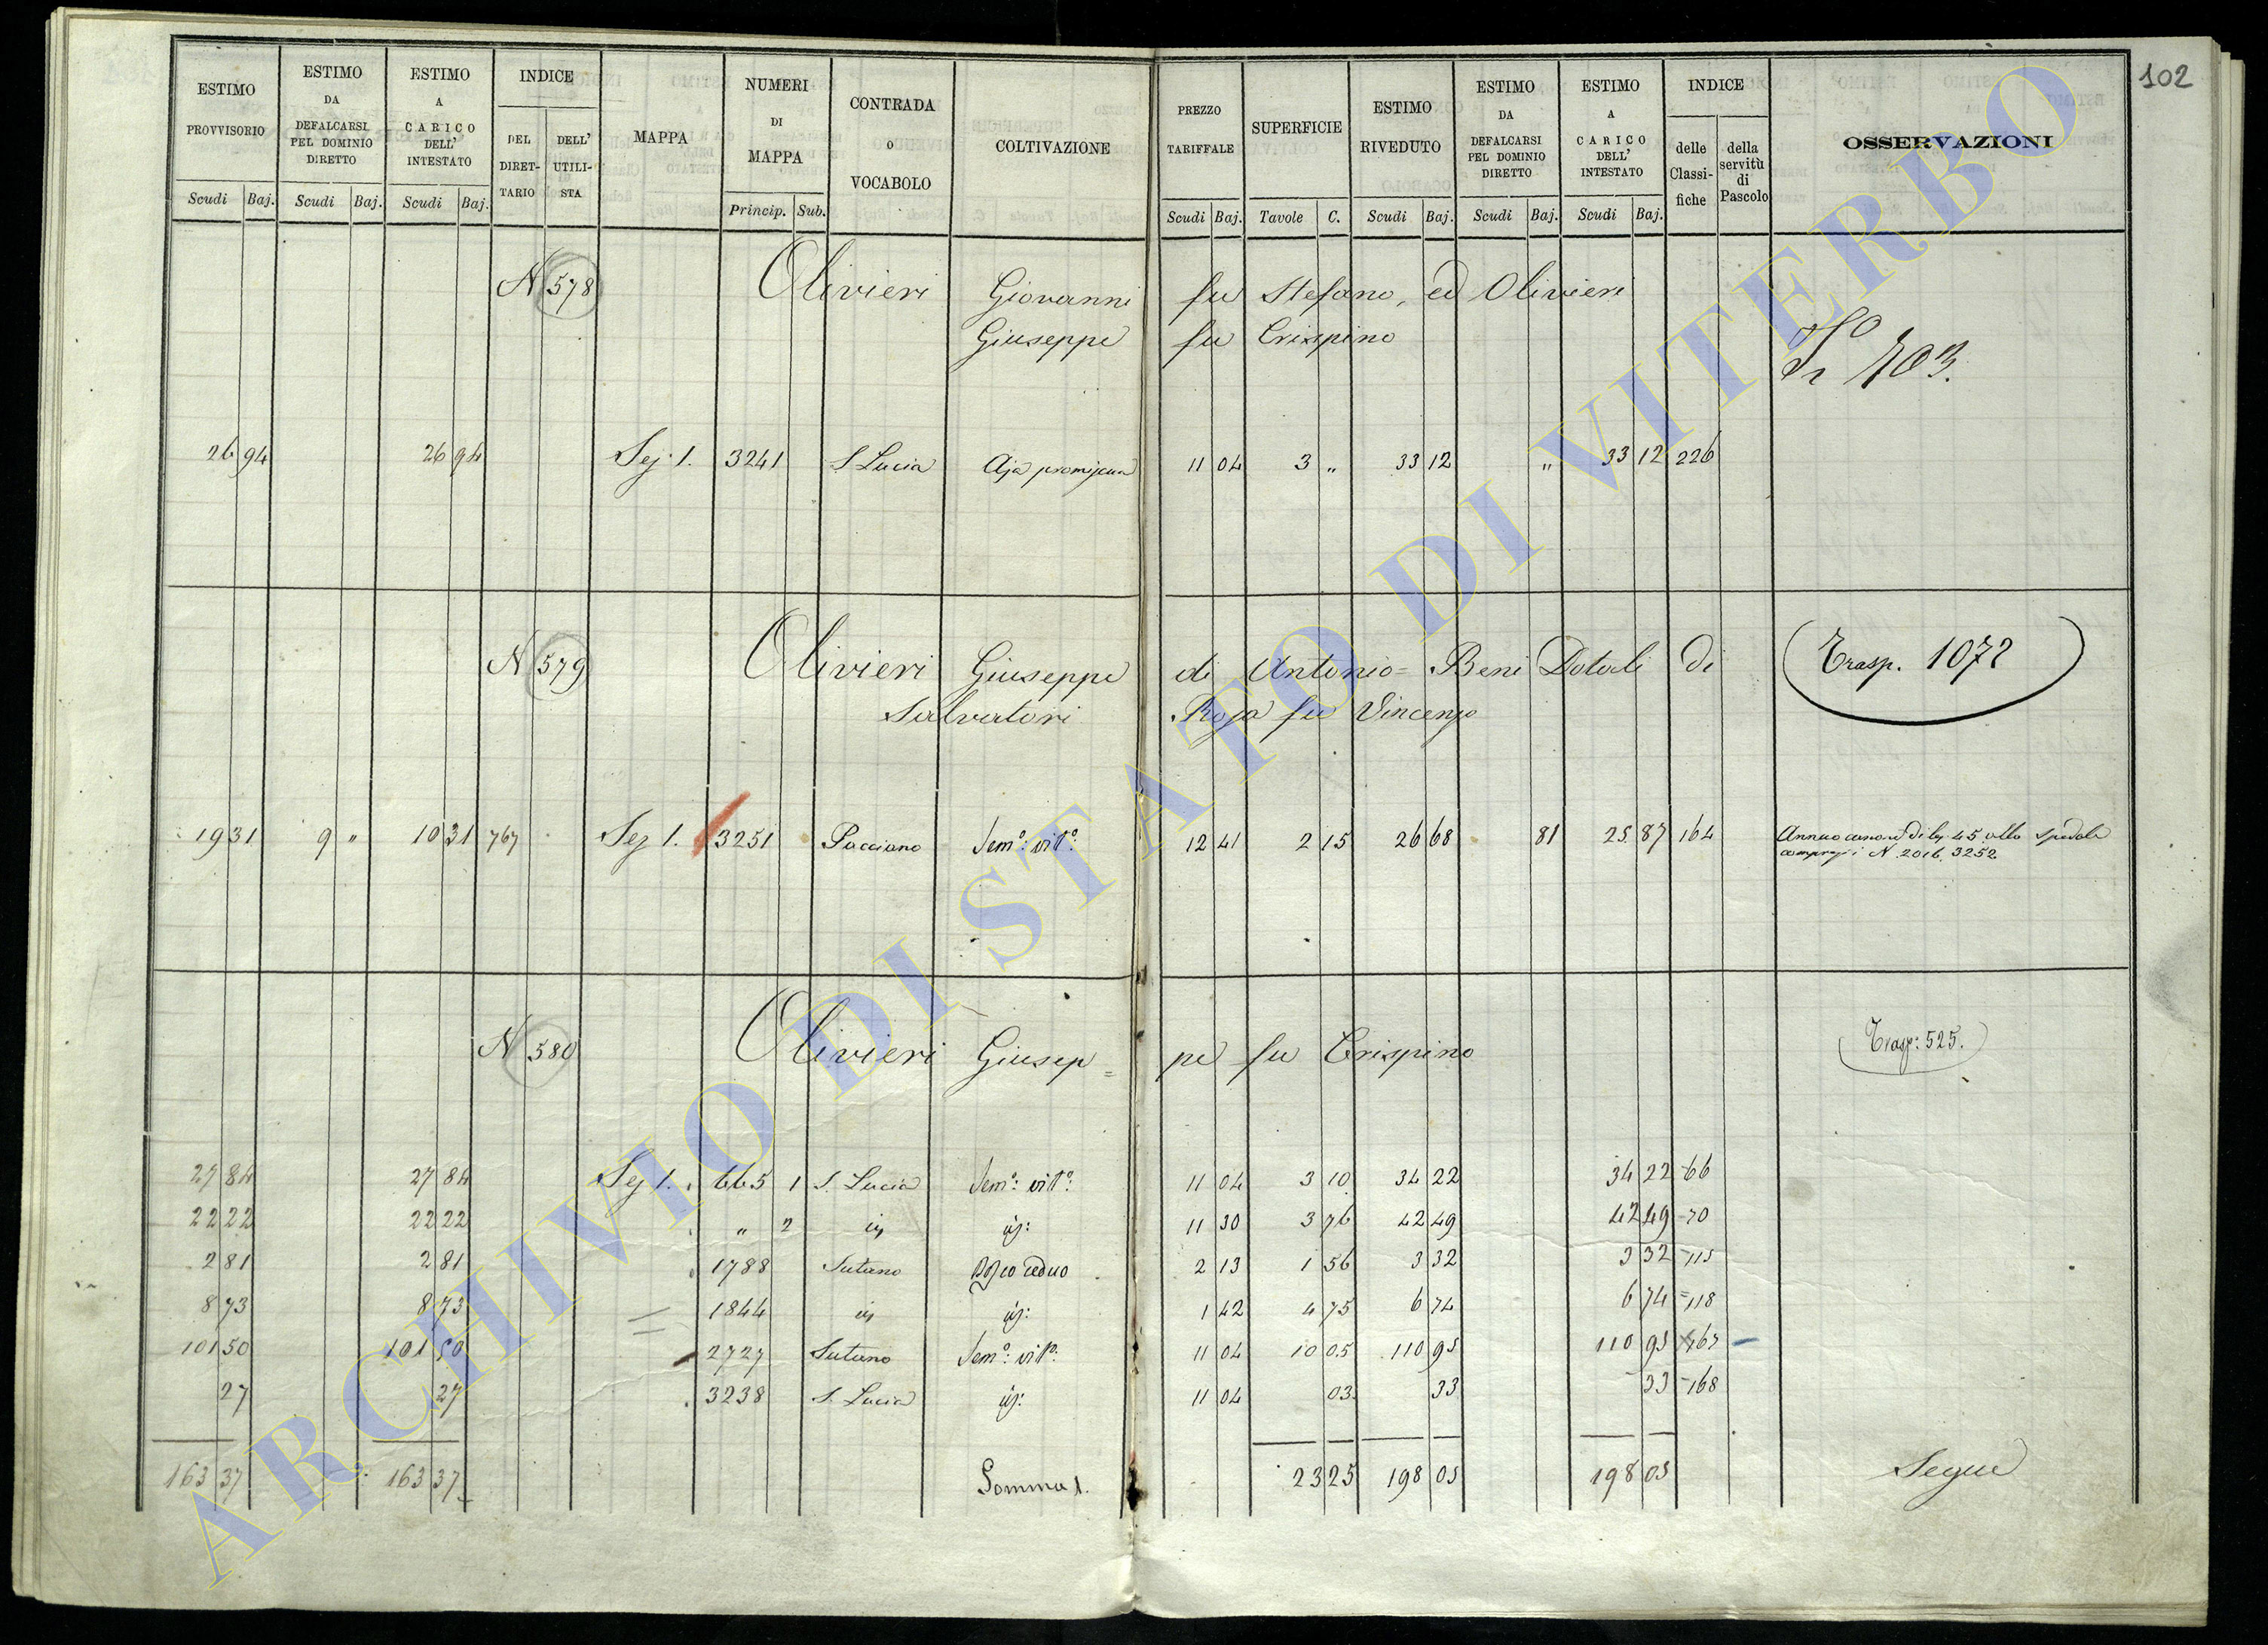 102
ESTIMO PROVVISORIO | ESTIMO DA DEFALCARSI PEL DOMINIO DIRETTO | ESTIMO A CARICO DELL' INTESTATO | INDICE DEL DIRETTARIO | DELL' UTILISTA | MAPPA | NUMERI DI MAPPA | CONTRADA O VOCABOLO | COLTIVAZIONE | PREZZO TARIFFALE | SUPERFICIE | ESTIMO RIVEDUTO | ESTIMO DA DEFALCARSI PEL DOMINIO DIRETTO | ESTIMO A CARICO DELL' INTESTATO | INDICE delle Classifiche | della servitù di Pascolo | OSSERVAZIONI
Scudi Baj. | Scudi Baj. | Scudi Baj. | Princip. Sub. | Scudi Baj. | Tavole C. | Scudi Baj. | Scudi Baj. | Scudi Baj.
N 578 Olivieri Giovanni fu Stefano, ed Olivieri
Giuseppe fu Crispino
703.
26 94 | 26 94 | Sez. 1. | 3241 | S. Lucia | Aja promiscua | 11 04 | 3 " | 33 12 | " | 33 12 | 226
N 579 Olivieri Giuseppe di Antonio = Beni Dotali di
Salvatori Rosa fu Vincenzo
Trasp. 1072
19 31 | 9 " | 10 31 | 767 | Sez 1. | 3251 | Pacciano | Sem.º vit.º | 12 41 | 2 15 | 26 68 | 81 | 25 87 | 164 | Annuo canone di 45 allo Spedale
N. 2016. 3252
N 580 Olivieri Giusep= pe fu Crispino
Trasp: 525.
27 84 | 27 84 | Sez 1. | 665 1 | S. Lucia | Sem.º vit.º | 11 04 | 3 10 | 34 22 | 34 22 | 66
22 22 | 22 22 | " 2 | id | id: | 11 30 | 3 76 | 42 49 | 42 49 | 70
2 81 | 2 81 | 1788 | Sutano | Bosco ceduo | 2 13 | 1 56 | 3 32 | 3 32 | 115
8 73 | 8 73 | 1844 | id | id: | 1 42 | 4 75 | 6 74 | 6 74 | 118
101 50 | 101 50 | 2727 | Sutano | Sem.º vit.º | 11 04 | 10 05 | 110 95 | 110 95 | 167
27 | 27 | 3238 | S. Lucia | id: | 11 04 | 03 | 33 | 33 | 168
163 37 | 163 37 | Somma 1. | 23 25 | 198 05 | 198 05 | Segue
ARCHIVIO DI STATO DI VITERBO